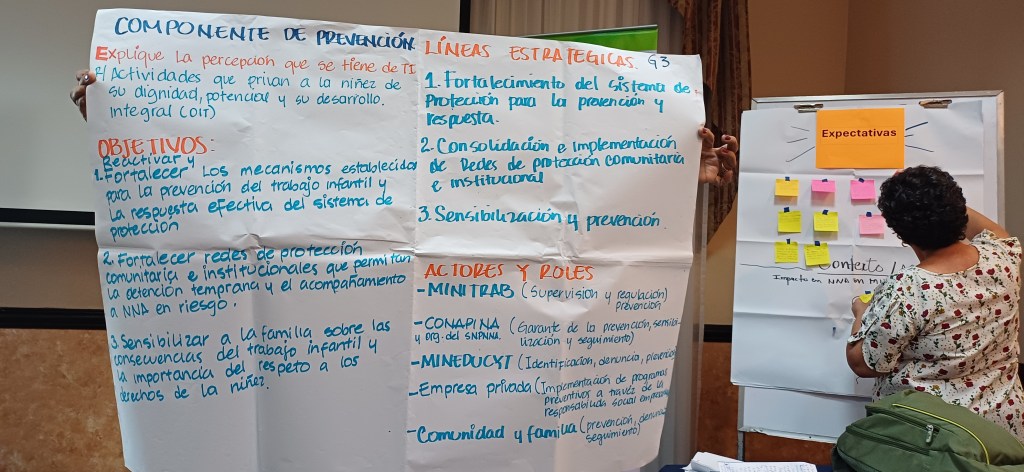 COMPONENTE DE PREVENCIÓN
Explique la percepcion que se tiene de TI
R/ Actividades que privan a la niñez de
su dignidad, potencial y su desarrollo.
Integral (OIT)
OBJETIVOS:
Reactivar y
1. Fortalecer los mecanismos establecidos
para la prevención del trabajo infantil y
la respuesta efectiva del sistema de
protección
2. Fortalecer redes de protección
comunitaria e institucionales que permitan
la detención temprana y el acompañamiento
a NNA en riesgo.
3. Sensibilizar a la familia sobre las
consecuencias del trabajo infantil y
la importancia del respeto a los
derechos de la niñez.
LÍNEAS ESTRATEGICAS. G3
1. Fortalecimiento del sistema de
Protección para la prevención y
respuesta.
2. Consolidación e Implementación
de Redes de protección comunitaria
e institucional
3. Sensibilización y prevención.
ACTORES Y ROLES
- MINITRAB (Supervision y regulación)
Prevención
- CONAPINA (Garante de la prevención, sensibi-
y org. del SNPNNA. lización y seguimiento)
- MINEDUCYT (Identificación, denuncia, prevención
- Empresa privada (Implementación de programas
preventivos a travéz de la
responsabilida social empresa
- Comunidad y familia (prevención, denuncia
seguimiento)
Expectativas
Contexto
Impacto en NNA en